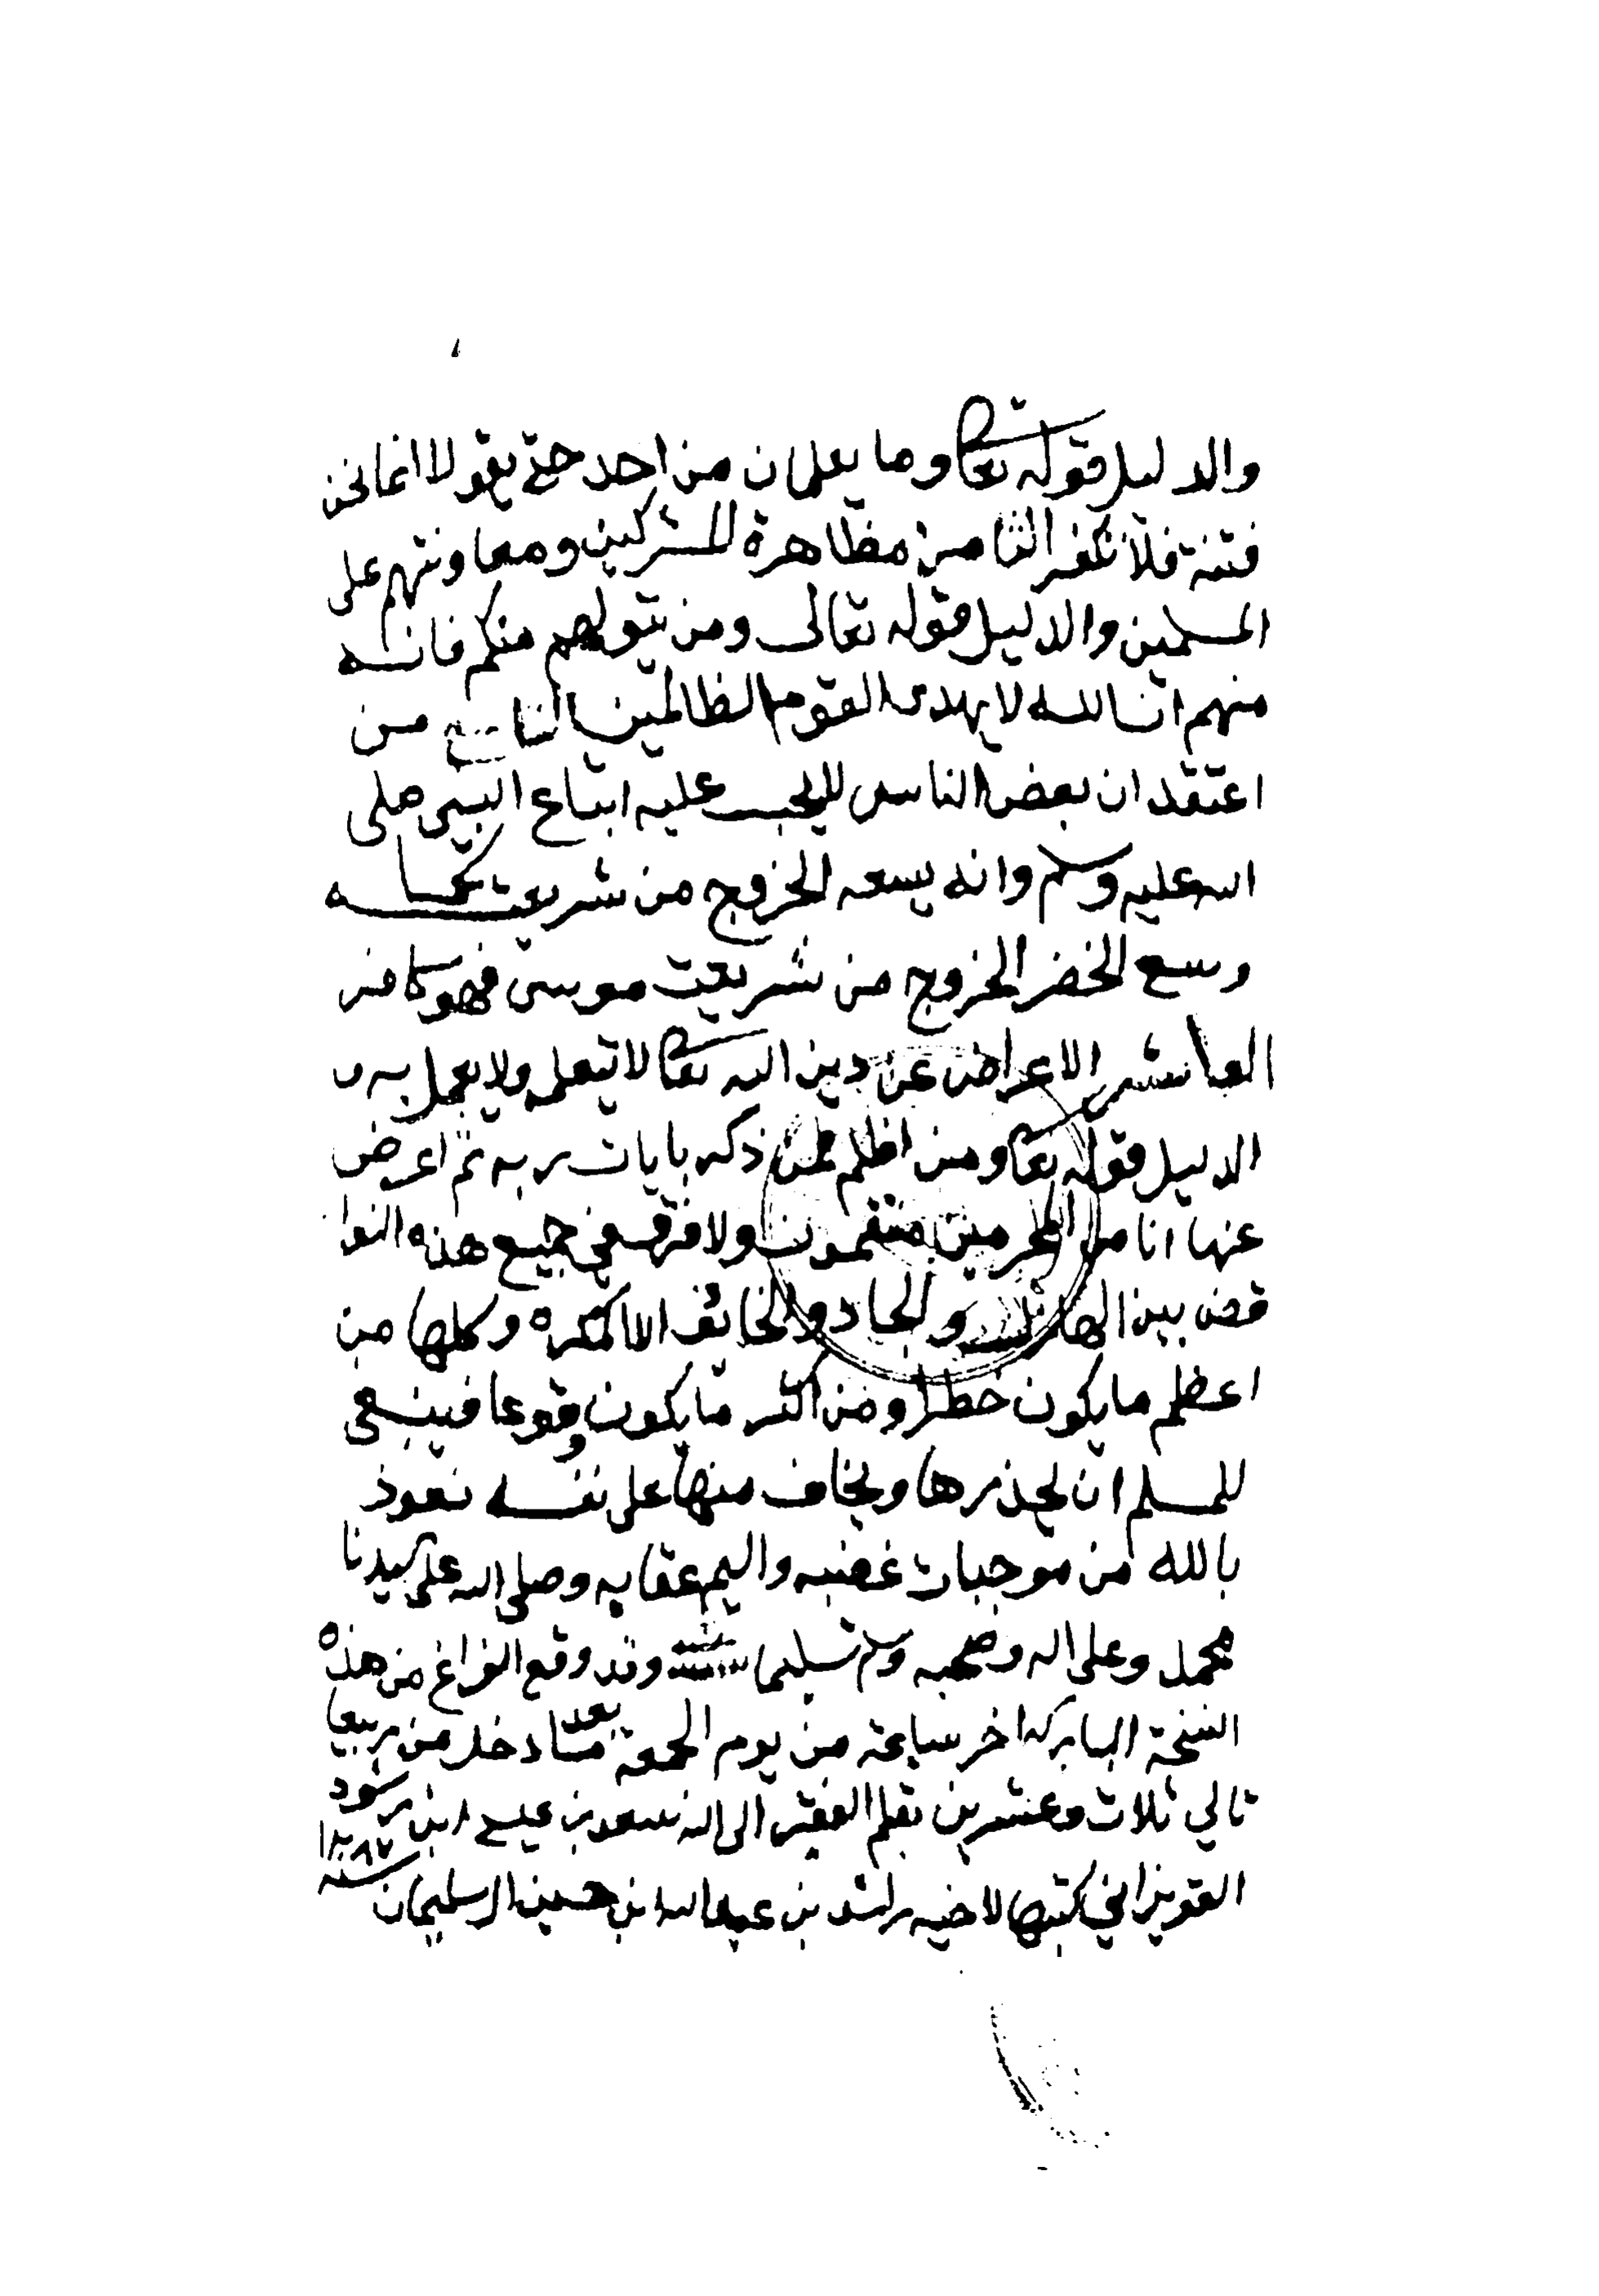 والدليل قوله تعا وما يعلمان من احد حتى يقولا انما نحن
فتنة فلا تكفر الثامن مظاهرة المشركين ومعاونتهم على
المسلمين والدليل قوله تعالى ومن يتولهم منكم فانه
منهم ان الله لا يهدى القوم الظالمين التاسع من
اعتقد ان بعض الناس لا يجب عليه اتباع النبي صلى
الله عليه وسلم وانه يسعه الخروج من شريعته كما
وسع الخضر الخروج من شريعت موسى فهو كافر
العاشر الاعراض عن دين الله تعا لا يتعلمه ولا يعمل به و
الدليل قوله تعا ومن اظلم ممن ذكر بايات ربه ثم اعرض
عنها انا من المجرمين منتقمون ولا فرق في جميع هذه النوا
قض بين الهازل والجاد والخائف الا المكره وكلها من
اعظم ما يكون خطرا ومن اكثر ما يكون وقوعا فينبغي
للمسلم ان يحذرها ويخاف منها على نفسه نعوذ
بالله من موجبات غضبه واليم عقابه وصلى الله على سيدنا
محمد وعلى اله وصحبه وسلم تسليما وقد وقع الفراغ من هذه
النسخة المباركه اخر ساعة من يوم الجمعة بعد ما دخل من ربيعا
تالي ثلاث وعشرين بقلم الفقير الى الله سعد بن ابن رشود
القويزاني كتبها لاخيه راشد بن عبدالله ابن حسين ال سليمان سنه